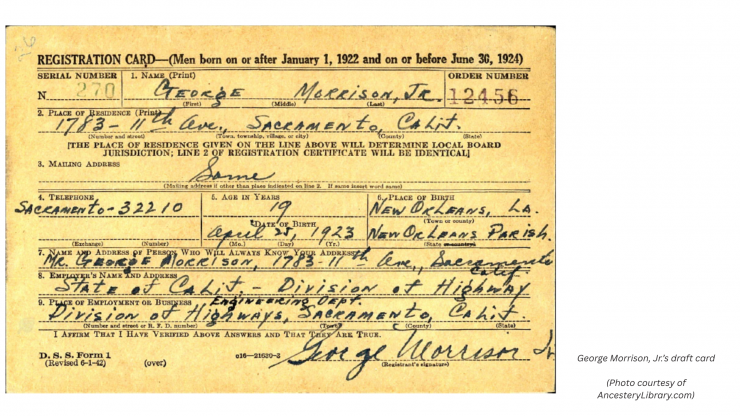 REGISTRATION CARD—(Men born on or after January 1, 1922 and on or before June 30, 1924)
SERIAL NUMBER 1. NAME (Print) ORDER NUMBER
N 270 GEORGE MORRISON, JR. 12456
(First) (Middle) (Last)
2. PLACE OF RESIDENCE (Print)
1783-11th Ave., SACRAMENTO, CALIF.
(Number and street) (Town, township, village, or city) (County) (State)
[THE PLACE OF RESIDENCE GIVEN ON THE LINE ABOVE WILL DETERMINE LOCAL BOARD
JURISDICTION; LINE 2 OF REGISTRATION CERTIFICATE WILL BE IDENTICAL]
3. MAILING ADDRESS
Same
(Mailing address if other than place indicated on line 2. If same insert word same)
4. TELEPHONE 5. AGE IN YEARS 6. PLACE OF BIRTH
SACRAMENTO-32210 19 NEW ORLEANS, LA.
DATE OF BIRTH (Town or county)
April 1923 NEW ORLEANS PARISH.
(Exchange) (Number) (Mo.) (Day) (Yr.) (State or country)
7. NAME AND ADDRESS OF PERSON WHO WILL ALWAYS KNOW YOUR ADDRESS
Mr. GEORGE MORRISON, 1783-11th Ave., Sacramento
Calif.
8. EMPLOYER'S NAME AND ADDRESS
State of Calif. - Division of Highway
9. PLACE OF EMPLOYMENT OR BUSINESS ENGINEERING DEPT.
Division of Highways, SACRAMENTO, CALIF.
(Number and street or R. F. D. number) (Town) (County) (State)
I AFFIRM THAT I HAVE VERIFIED ABOVE ANSWERS AND THAT THEY ARE TRUE.
D. S. S. Form 1
(Revised 6-1-42) (over) c16—21630-2 George Morrison Jr
(Registrant's signature)
George Morrison, Jr.'s draft card
(Photo courtesy of
AncesteryLibrary.com)